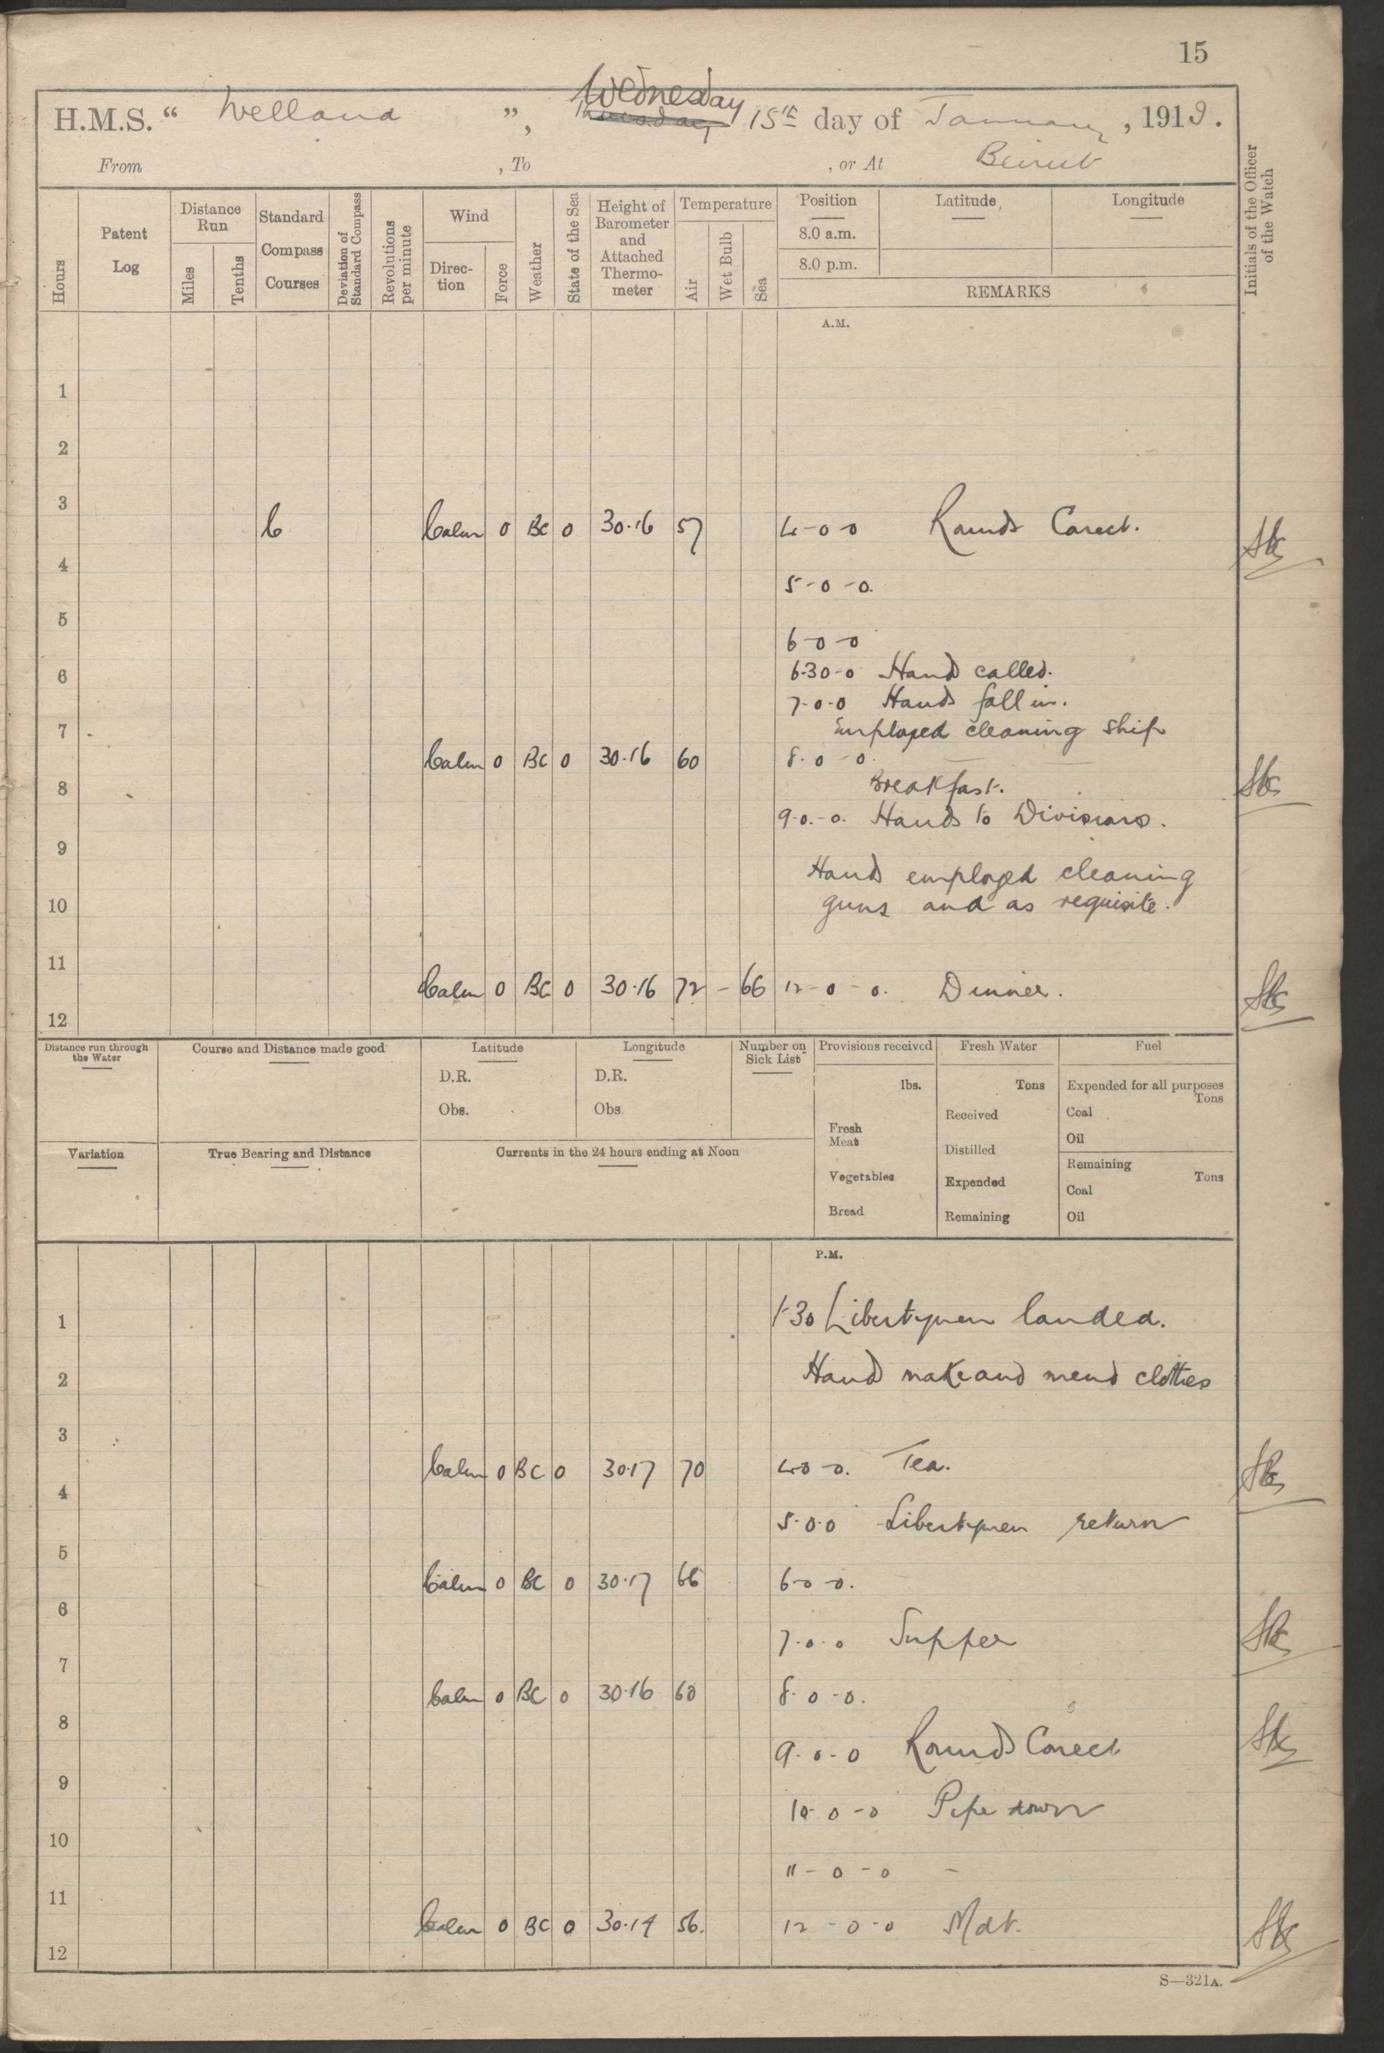 15
H.M.S. “ Welland ”, Wednesday 15th day of January, 1919.
From , To , or At Beirut
Initials of the Officer of the Watch
Hours
Patent Log
Distance Run
Miles
Tenths
Standard Compass Courses
Deviation of Standard Compass
Revolutions per minute
Wind
Direc-tion
Force
Weather
State of the Sea
Height of Barometer and Attached Thermo-meter
Temperature
Air
Wet Bulb
Sea
Position
8.0 a.m.
8.0 p.m.
Latitude
Longitude
REMARKS
A.M.
1
2
3
C Calm 0 BC 0 30.16 57 4-0-0 Rounds Corect.
4
5-0-0.
5
6-0-0
6.30-0 Hands called.
6
7-0-0 Hands fall in.
Employed cleaning ship
7
Calm 0 BC 0 30.16 60 8-0-0.
Breakfast.
8
9-0-0. Hands to Divisions.
9
Hands employed cleaning
guns and as requisite.
10
11
Calm 0 BC 0 30.16 72 - 66 12-0-0. Dinner.
12
Distance run through the Water
Course and Distance made good
Latitude
D.R.
Obs.
Longitude
D.R.
Obs.
Number on Sick List
Provisions received
lbs.
Fresh Meat
Vegetables
Bread
Fresh Water
Tons
Received
Distilled
Expended
Remaining
Fuel
Expended for all purposes
Tons
Coal
Oil
Remaining
Tons
Coal
Oil
Variation
True Bearing and Distance
Currents in the 24 hours ending at Noon
P.M.
1-30 Libertymen landed.
1
Hands make and mend clothes
2
3
Calm 0 BC 0 30.17 70 4-0-0. Tea.
4
5-0-0 Libertymen return
5
Calm 0 BC 0 30.17 66 6-0-0.
6
7-0-0 Supper
7
Calm 0 BC 0 30.16 60 8-0-0.
8
9-0-0 Rounds Corect
9
10-0-0 Pipe down
10
11-0-0 -
11
Calm 0 BC 0 30.14 56. 12-0-0 Mdt.
12
S—321A.